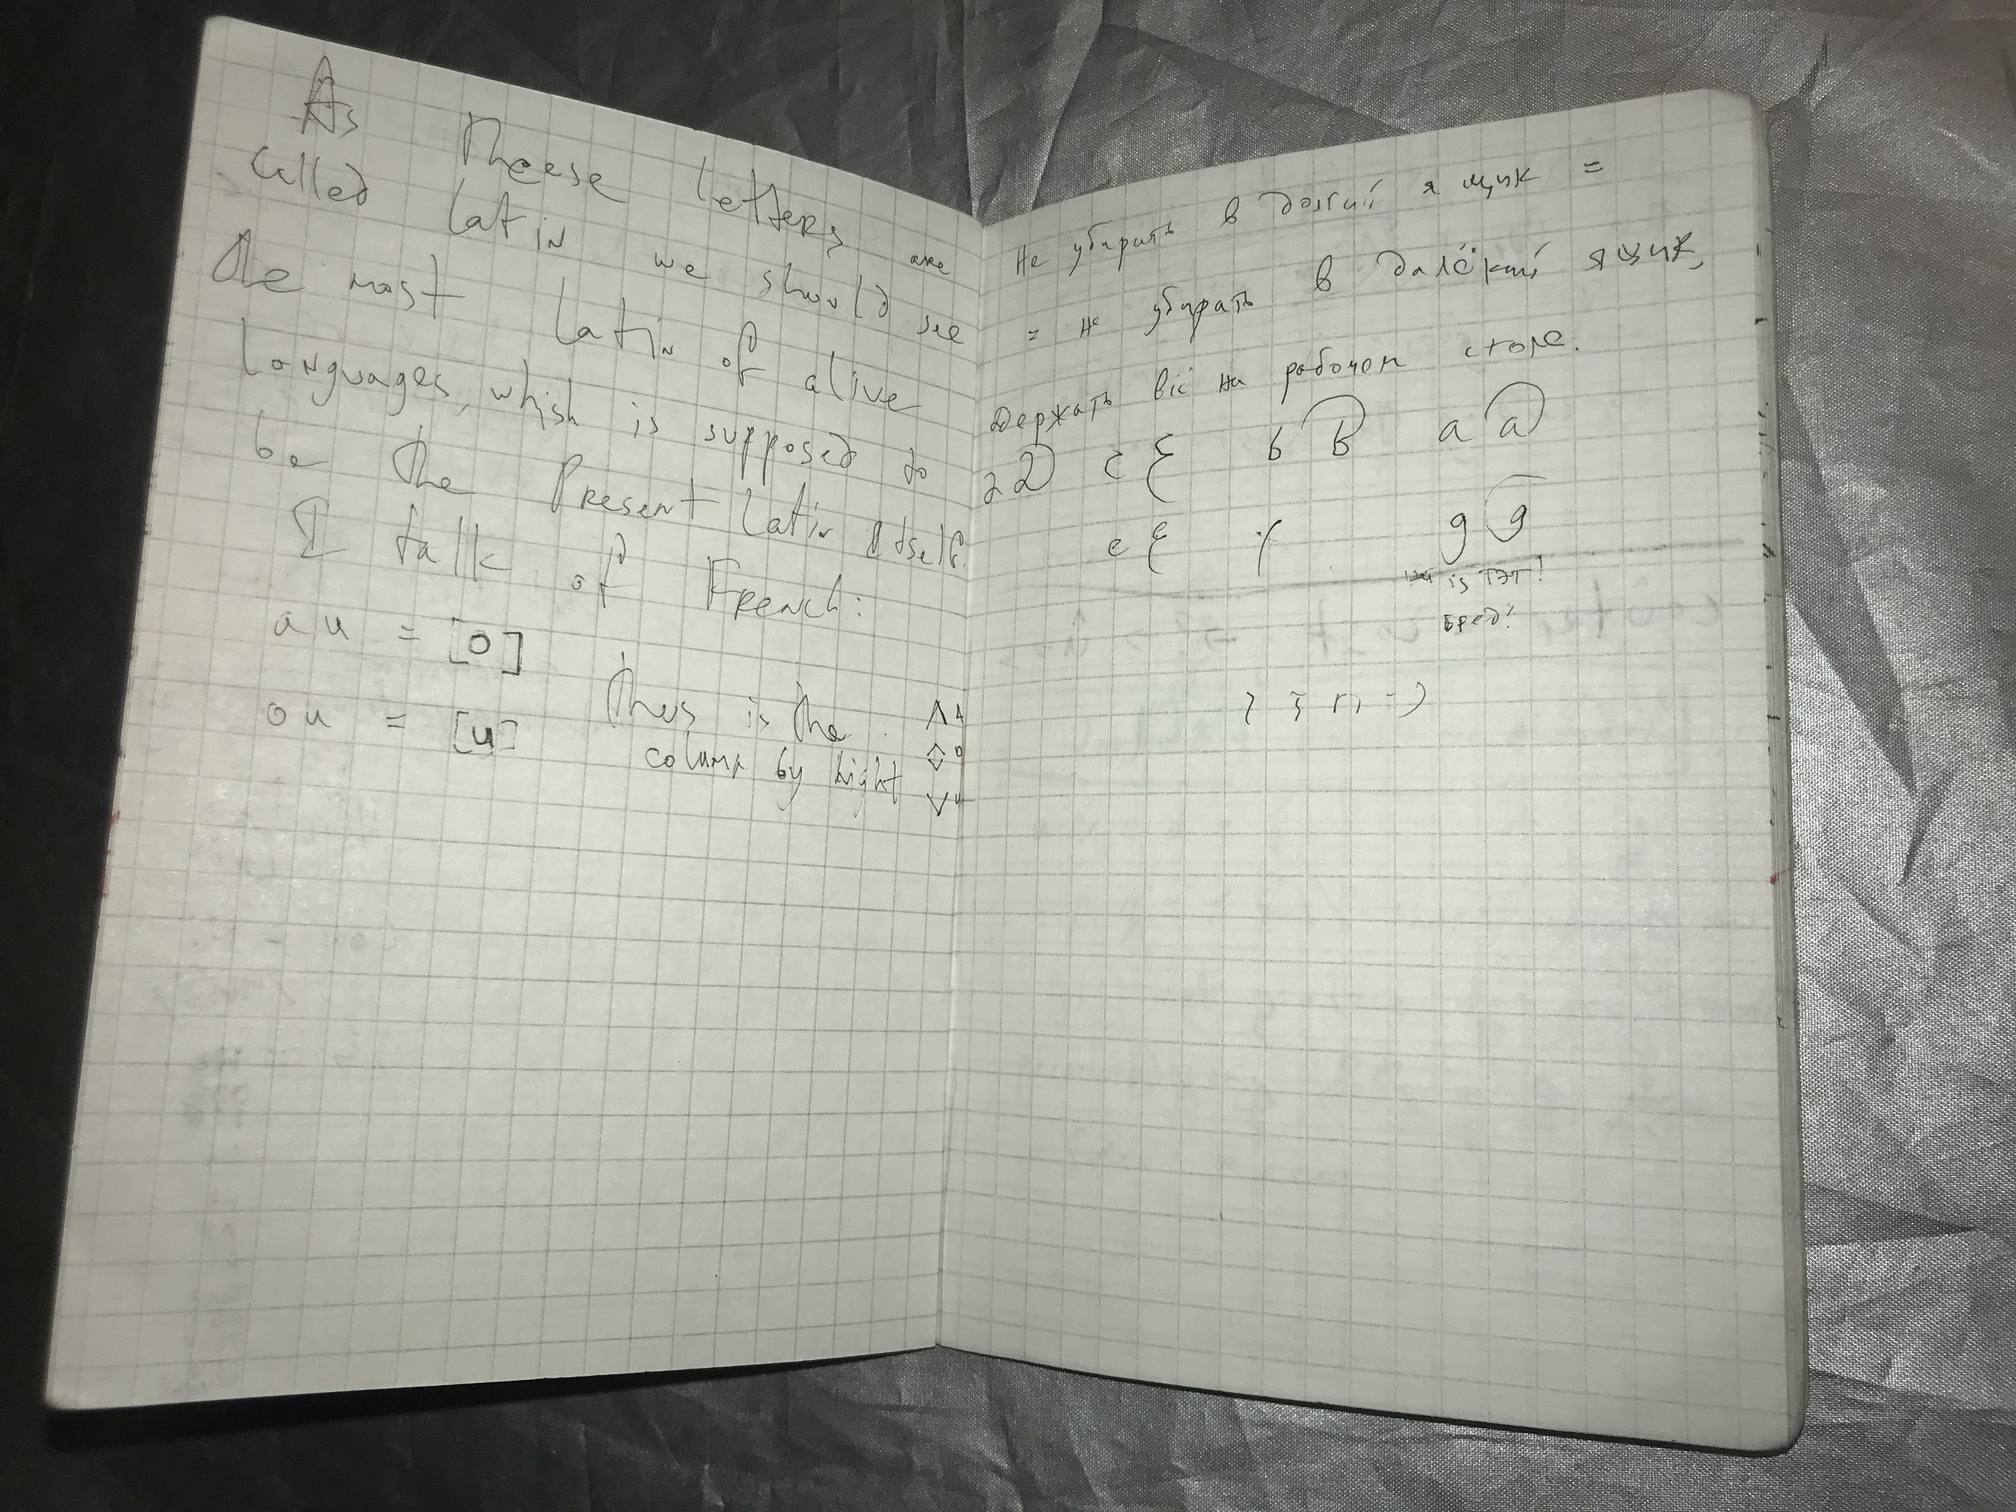 As Theese letters are
called latin we should see
the most latin of alive
languages, which is supposed to
be the Present Latin Itself.
I talk of French:
au = [o]
ou = [u]
Thus is the
column by hight
Λ A
◇ O
V U
Не убирать в долгий ящик =
= не убирать в далёкий ящик,
держать всё на рабочем столе.
a a
g g
is тэт!
Бред?